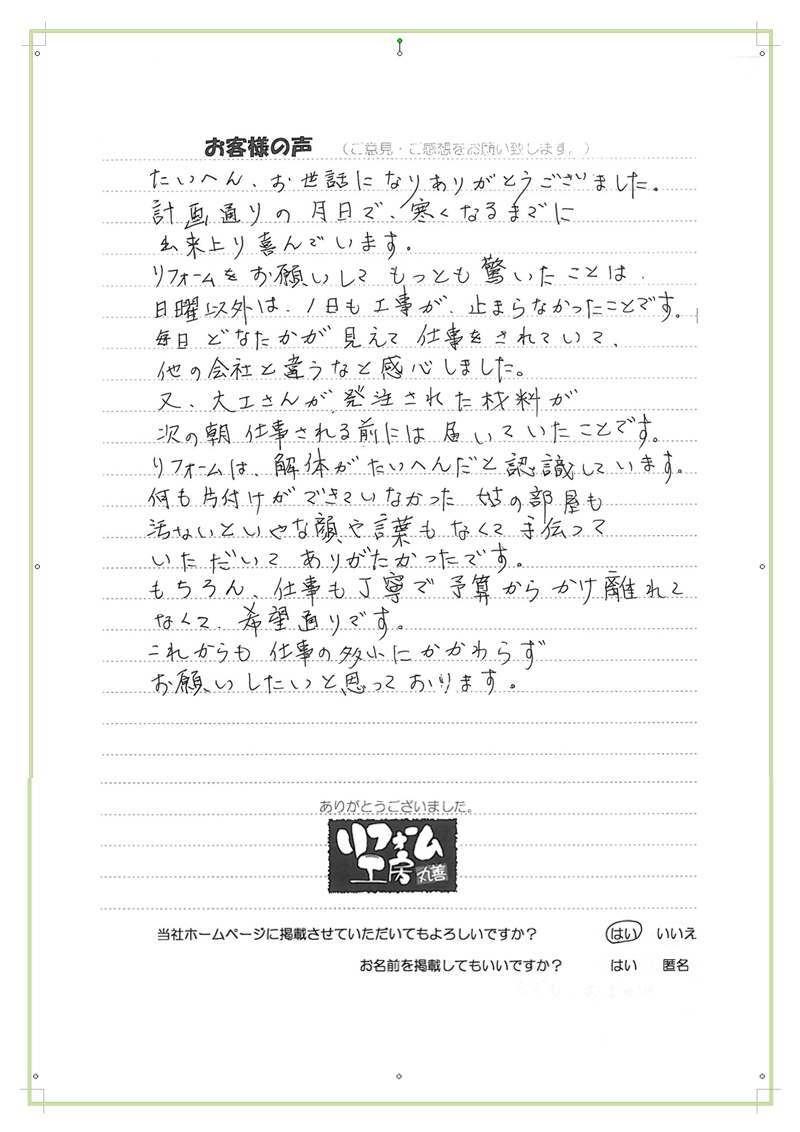 お客様の声 (ご意見・ご感想をお願い致します。)
たいへん、お世話になりありがとうございました。
計画通りの月日で、寒くなるまでに
出来上り喜んでいます。
リフォームをお願いしてもっとも驚いたことは、
日曜以外は、1日も工事が、止まらなかったことです。
毎日どなたかが見えて仕事をされていて、
他の会社と違うなと感心しました。
又、大工さんが、発注された材料が
次の朝仕事される前には届いていたことです。
リフォームは、解体がたいへんだと認識しています。
何も片付けができていなかった姑の部屋も
汚ないといやな顔や言葉もなくて手伝って
いただいてありがたかったです。
もちろん、仕事も丁寧で予算からかけ離れて
なくて、希望通りです。
これからも仕事の多少にかかわらず
お願いしたいと思っております。
ありがとうございました。
リフォーム
工房 丸善
当社ホームページに掲載させていただいてもよろしいですか? はい いいえ
お名前を掲載してもいいですか? はい 匿名